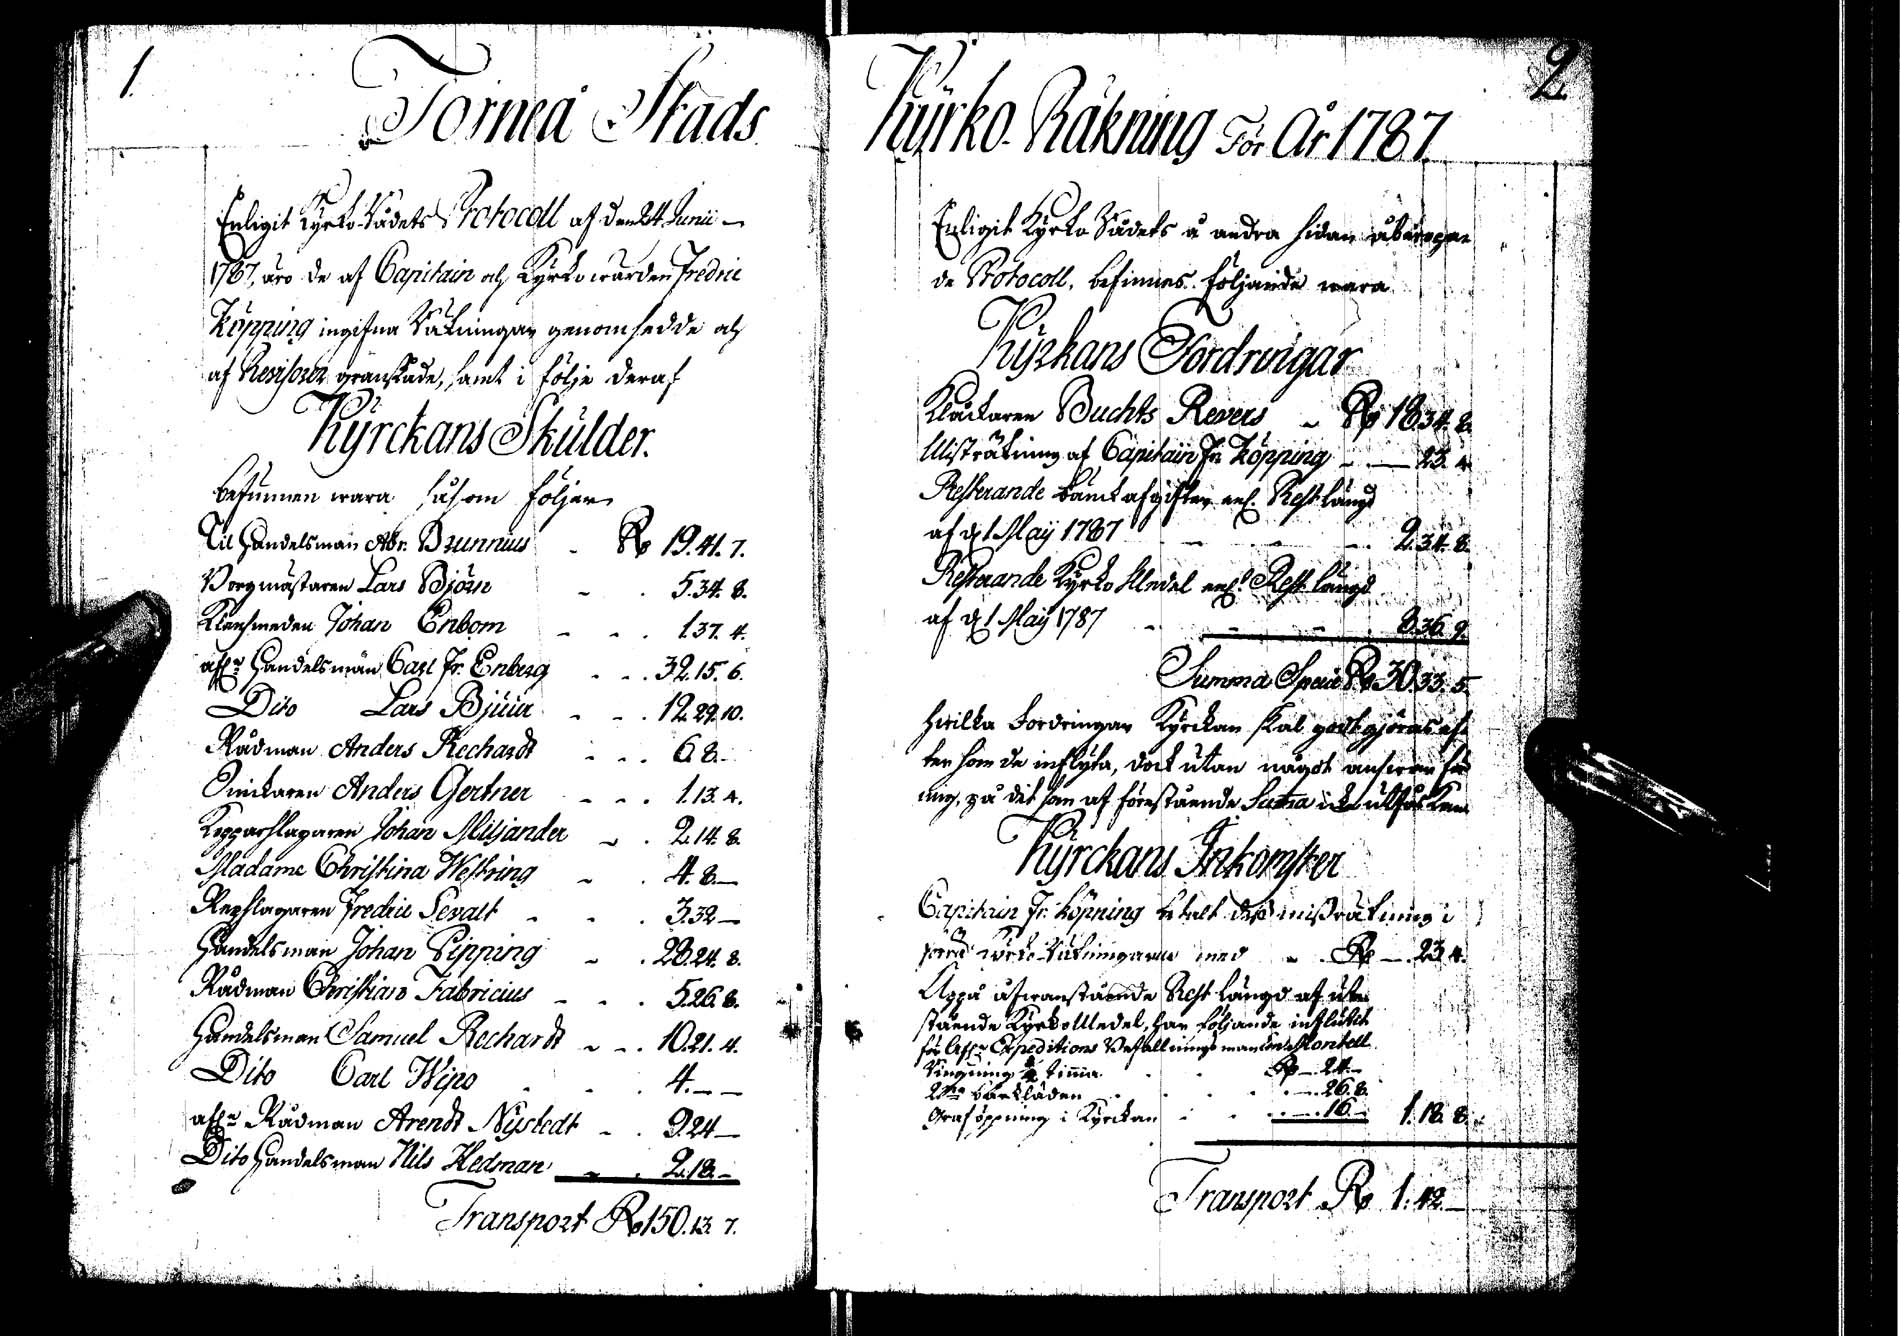 1.
Torneå Stads
Enligit Kyrko-Rådets Protocoll af den 24 Junii
1787, äro de af Capitain och Kyrkowärden Fredric
Köpping ingifna Räkningar genomsedde och
af Revisorer granskade, samt i följe deraf
Kÿrckans Skulder.
befunnen wara såsom följer
Til Handelsman Abr. Brunnius - Rd 19.41.7.
Borgmästaren Lars Björn - . 5.34.8.
Kleinsmeden Johan Enbom - - . 1.37.4.
afl. Handelsman Carl Fr. Enberg - - . 32.15.6.
Dito Lars Bjuur - - . 12.29.10.
Rådman Anders Rechardt - - . 6.8.-
Snickaren Anders Gertner - - . 1.13.4.
Kopparslagaren Johan Miljander - . 2.14.8.
Madame Christina Westring - . 4.8.-
Repslagaren Fredric Sevalt - - . 3.32-
Handelsman Johan Pipping - . 28.24.8.
Rådman Christian Fabricius - - . 5.26.8.
Handelsman Samuel Rechardt - - . 10.21.4.
Dito Carl Wipo . . . 4.--
afl. Rådman Arendt Nystedt - . 9.24-
Dito Handelsman Nils Hedman - . 2.18.-
Transport Rd 150.13.7.
2.
Kÿrko-Räkning För År 1787.
Enligit Kyrko Rådets å andra sidan åberopan
de Protocoll, befinnes följande wara
Kÿrkans Fordringar
Klåckaren Buchts Revers - Rd 18.34.8.
Misräkning af Capitain Fr. Köpping - — 23.4
Resterande bänkafgifter enl. Rest längd
af d. 1 Maij 1787 - - - 2.34.8.
Resterande Kyrko Medel enl. Rest längd
af d. 1 Maij 1787 - - - 8.36.9.
Summa Specie Rd 30.33.5.
hwilka fordringar Kyrckan skal godtgjöras ef-
ter som de inflyta, dock utan något answar för
mig, på det som af förestående Summa icke
Kÿrckans Inkomster
Capitain Fr. Köpping betalt dess missräkning i
Kyrko-Räkningarne med - . Rd — . 23.4.
Uppå ofwanstående Rest längd af ute
stående Kyrko Medel, har följande influtit
för Afl. Expeditions Befallningsmannen Montell
Ringning ½ timma . . Rd — 24.—
bårkläden . . . — . 26.8.
Graföppning i Kyrckan . . . — . 16 — 1.18.8.
Transport Rd 1.42.—